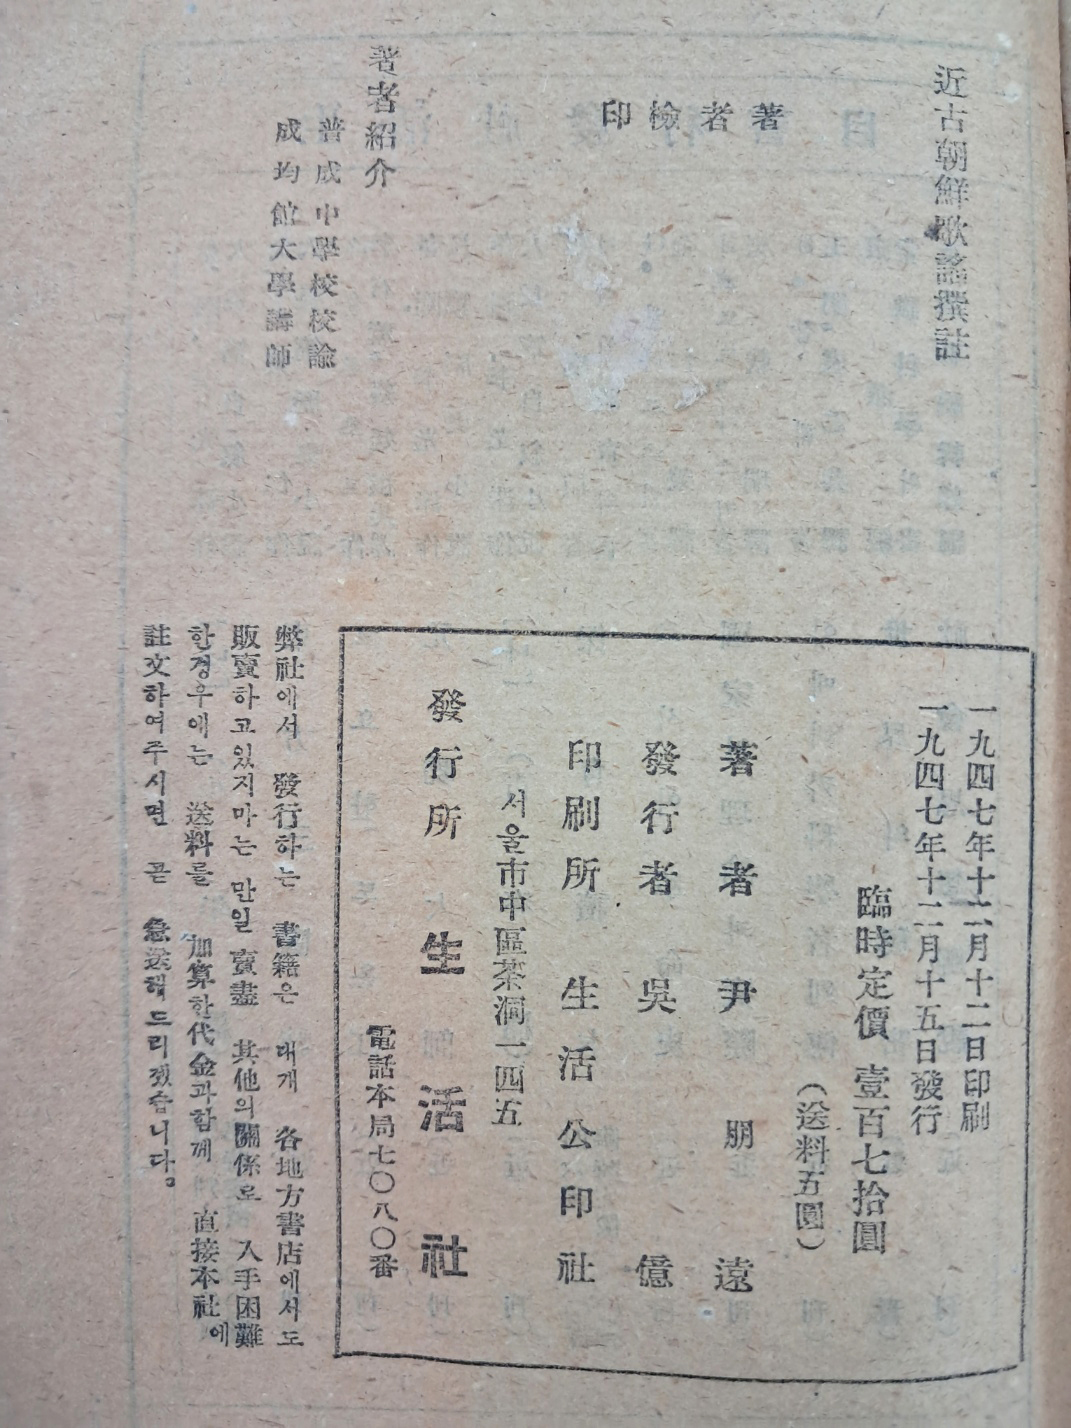 近古朝鮮歌謠撰註
著者檢印
著者紹介
普成中學校校諭
成均館大學講師
一九四七年十二月十二日印刷
一九四七年十二月十五日發行
臨時定價 壹百七拾圓
（送料五圓）
著者 尹朋遠
發行者 吳億
印刷所 生活公印社
서울市中區茶洞一四五
發行所 生活社
電話本局七〇八〇番
弊社에서 發行하는 書籍은 대개 各地方書店에서도
販賣하고있지마는 만일 賣盡 其他의關係로 入手困難
한경우에는 送料를 加算한代金과함께 直接本社에
註文하여주시면 곧 急送해드리겠습니다。